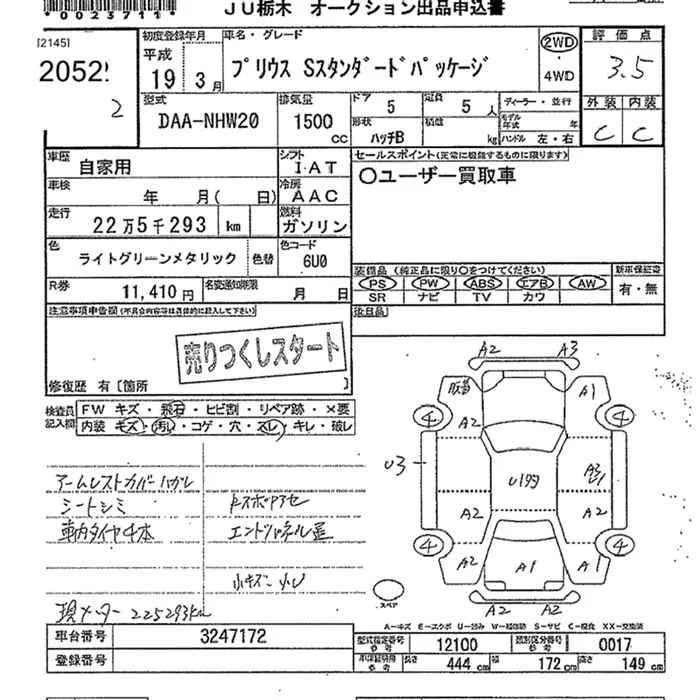 *0023711*
JU栃木 オークション出品申込書
[2145]
2052
2
初度登録年月
平成
19年 3月
車名・グレード
プリウス Sスタンダードパッケージ
2WD
・
4WD
評価点
3.5
外装 内装
C C
型式
DAA-NHW20
排気量
1500 cc
ドア
5
定員
5 人
形状
ハッチB
積載
kg
ディーラー・並行
モデル年式 年
ハンドル 左・右
車歴
自家用
シフト
I・AT
車検
年 月( 日)
冷房
AAC
走行
22万5千293 km
燃料
ガソリン
色
ライトグリーンメタリック
色替
色コード
6U0
R券
11,410円
名変通知期限
月 日
セールスポイント(正常に機能するものに限ります)
〇ユーザー買取車
装備品 (純正品に限り〇をつけてください)
PS PW ABS エアB AW
SR ナビ TV カワ
新車保証書
有・無
後日品
注意事項申告欄(不具合内容等は具体的に記入して下さい)
売りつくしスタート
修復歴 有 [箇所 ]
検査員記入欄
FW キズ・飛石・ヒビ割・リペア跡・×要
内装 キズ・汚れ・コゲ・穴・スレ・キレ・破レ
アームレストカバーハガレ
シートシミ
車内タイヤ4本
現メーター 225293km
小キズ・小U
A2 A3
A1
A2
4 4
U3
U199
A2 A2
4 4
A2 A1 A1
A2 A2
スペア
A-キズ E-エクボ U-凹み W-補修跡 S-サビ C-腐食 XX-交換済
車台番号
3247172
登録番号
型式指定番号
12100
類別区分番号
0017
長さ 444 cm
幅 172 cm
高さ 149 cm